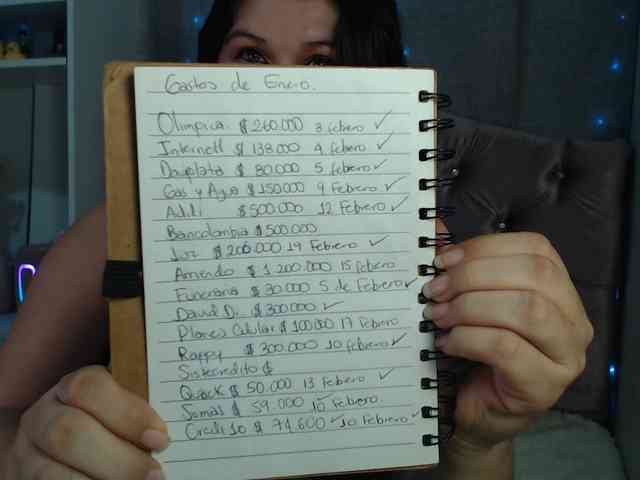 Gastos de Enero.
Olimpica $ 260.000 3 febrero ✓
Internett $ 138.000 4 febrero ✓
Daviplata $ 80.000 5 febrero ✓
Gas y Agua $ 150.000 9 Febrero ✓
Addi $ 500.000 12 Febrero ✓
Bancolombia $ 500.000
Luz $ 200.000 19 Febrero ✓
Arriendo $ 1.200.000 15 febrero
Funeraria $ 30.000 5 de Febrero ✓
David D. $ 300.000 ✓
Planes Celular $ 100.000 17 Febrero
Rappy $ 300.000 10 febrero ✓
Sistecredito $
$ 50.000 13 febrero ✓
$ 59.000 10 Febrero
$ 71.600 ✓ 10 Febrero ✓